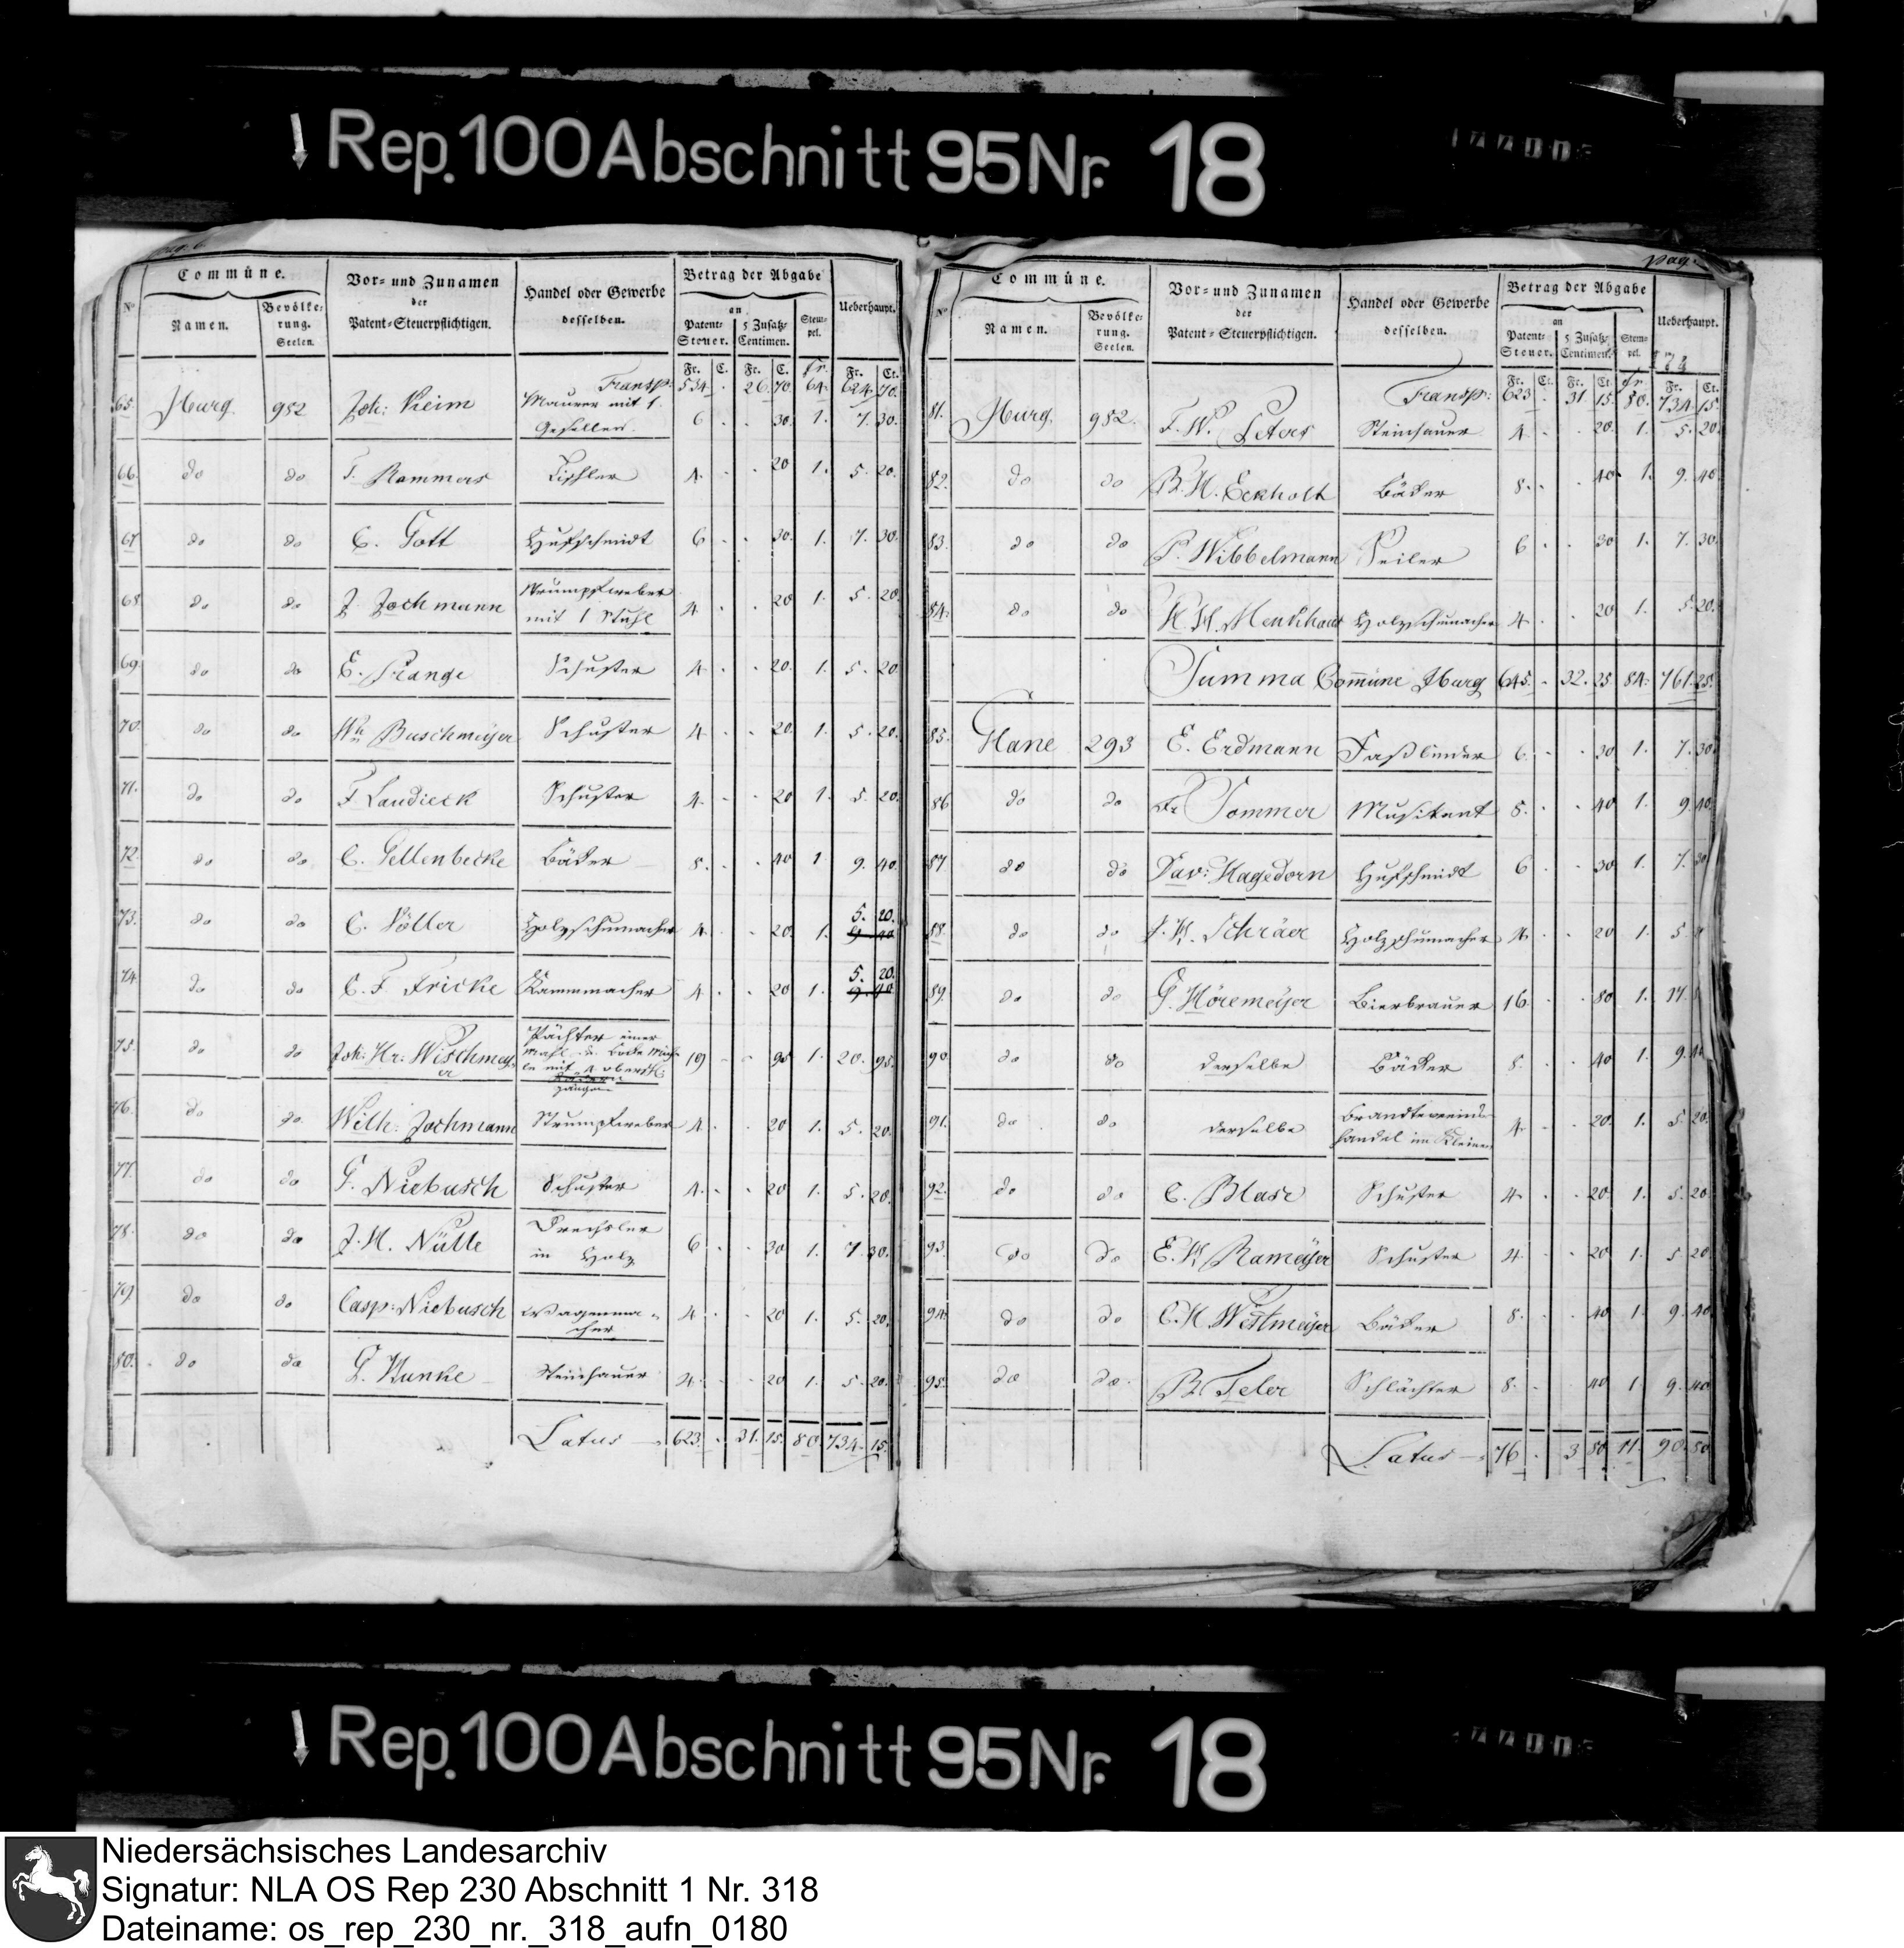 Rep. 100 Abschnitt 95 Nr. 18
pag. 6
Commüne.
Betrag der Abgabe
No
Namen.
Bevölke-
rung.
Seelen.
Vor- und Zunamen
der
Patent-Steuerpflichtigen.
Handel oder Gewerbe
desselben.
an
Patent-
Steuer.
5 Zusatz-
Centimen.
Stem-
pel.
Ueberhaupt.
Fr. C. Fr. C. fr. Fr. Ct.
Transp: 534. . 26. 70. 64. 624. 70.
65. Iburg. 952 Joh: Keim Maurer mit 1 Gesellen. 6 . . 30. 1. 7. 30.
66. do do F. Rammers Tischler 4. . . 20 1. 5. 20.
67 do do C. Gott Hufschmidt 6 . . 30. 1. 7. 30.
68. do do J. Jochmann Strumpfweber
mit 1 Stuhl 4. . . 20 1. 5. 20.
69. do do E. Prange Schuster 4 . . 20. 1. 5. 20.
70. do do Wm Buschmeyer Schuster 4 . . 20. 1. 5. 20.
71. do do F Laudieck Schuster 4. . . 20 1. 5. 20.
72. do do C. Gellenbecke Bäcker 8. . . 40 1 9. 40.
73. do do C. Völler Holzschumacher 4. . . 20. 1. 5. 20.
9. 40
74 do do C. F. Fricke Kammmacher 4. . . 20 1. 5. 20.
9. 40
75. do do Joh: Hr: Wischmey-
er Pächter einer
Mahl u. Boke Müh-
le mit 4 obersch: 19 . . 95 1. 20. 95.
76. do do Wilh: Jochmann Strumpfweber 4. . . 20 1. 5. 20.
77. do do G. Niebusch Schuster 4. . . 20 1. 5. 20.
78. do do J. H. Nülle Drechsler
in Holz 6 . . 30 1. 7. 30.
79. do do Casp: Niebusch Wagenma-
cher 4 . . 20 1. 5. 20.
80. do do G. Kunke Steinhauer 4. . . 20 1. 5. 20.
Latus 623. . 31. 15. 80. 734. 15.
pag.
Commüne.
Betrag der Abgabe
No
Namen.
Bevölke-
rung.
Seelen.
Vor- und Zunamen
der
Patent-Steuerpflichtigen.
Handel oder Gewerbe
desselben.
an
Patent-
Steuer.
5 Zusatz-
Centimen.
Stem-
pel.
Ueberhaupt.
Fr. Ct. Fr. Ct. fr. Fr. Ct.
Transp: 623. . 31. 15. 80. 734. 15.
81. Iburg. 952. F. W. Peters Steinhauer 4. . . 20. 1. 5. 20.
82. do do B. H. Eckholt Bäcker 8. . . 40 1. 9. 40.
83. do do P. Wibbelmann Seiler 6 . . 30 1. 7. 30.
84. do do Menkhaus Holzschumacher 4 . . 20 1. 5. 20.
Summa Commüne Iburg 645. . 32. 25 84. 761. 25.
85. Glane 293 E. Erdmann Faßbinder 6. . . 30 1. 7. 30.
86 do do Fr Sommer Musikant 8. . . 40 1. 9. 40.
87. do do Dav: Hagedorn Hufschmidt 6 . . 30 1. 7. 30
88. do do Schräer Holzschumacher 4. . . 20 1. 5.
89. do do G. Höremeyer Bierbrauer 16. . 80 1. 17.
90. do do derselbe Bäcker 8. . . 40 1. 9. 40
91. do do derselbe Brandtewein-
handel im Kleinen 4. . . 20. 1. 5. 20.
92. do do C. Blase Schuster 4. . . 20. 1. 5. 20
93. do do E. W Rameyer Schuster 4. . . 20 1. 5. 20
94. do do C. H Westmeyer Bäcker 8. . . 40 1. 9. 40
95. do do Schlächter 8. . 40 1. 9. 40
Latus 76. . 3 80. 11. 90. 80.
Rep. 100 Abschnitt 95 Nr. 18
Niedersächsisches Landesarchiv
Signatur: NLA OS Rep 230 Abschnitt 1 Nr. 318
Dateiname: os_rep_230_nr._318_aufn_0180